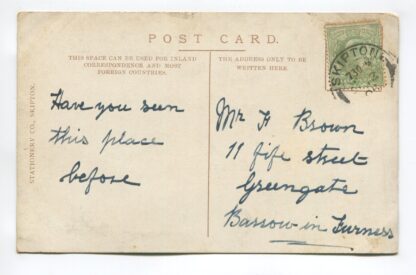 POST CARD.
THIS SPACE CAN BE USED FOR INLAND
CORRESPONDENCE AND MOST
FOREIGN COUNTRIES.
THE ADDRESS ONLY TO BE
WRITTEN HERE.
SKIPTON
STATIONERY CO., SKIPTON.
Have you seen
this place
before
Mr H Brown
11 fife street
Greengate
Barrow in Furness